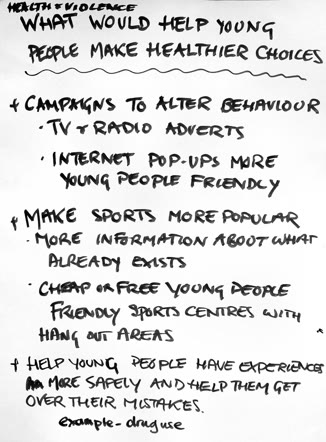 HEALTH & VIOLENCE
WHAT WOULD HELP YOUNG
PEOPLE MAKE HEALTHIER CHOICES
+ CAMPAIGNS TO ALTER BEHAVIOUR
· TV & RADIO ADVERTS
· INTERNET POP-UPS MORE
YOUNG PEOPLE FRIENDLY
+ MAKE SPORTS MORE POPULAR
· MORE INFORMATION ABOUT WHAT
ALREADY EXISTS
· CHEAP OR FREE YOUNG PEOPLE
FRIENDLY SPORTS CENTRES WITH
HANG OUT AREAS
+ HELP YOUNG PEOPLE HAVE EXPERIENCES
MORE SAFELY AND HELP THEM GET
OVER THEIR MISTAKES.
example - drug use